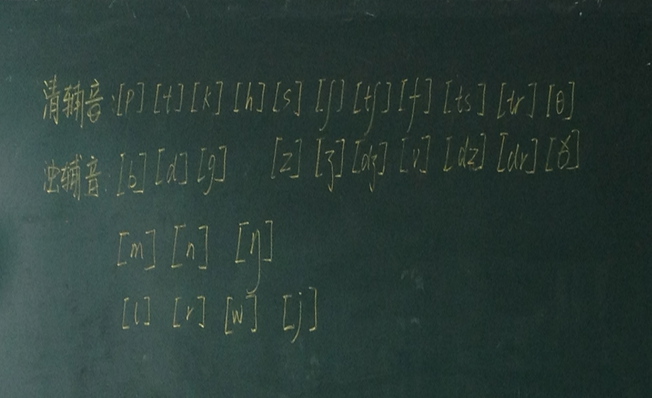 清辅音:[p] [t] [k] [h] [s] [ʃ] [tʃ] [f] [ts] [tr] [θ]
浊辅音:[b] [d] [g] [z] [ʒ] [dʒ] [v] [dz] [dr] [ð]
[m] [n] [ŋ]
[l] [r] [w] [j]